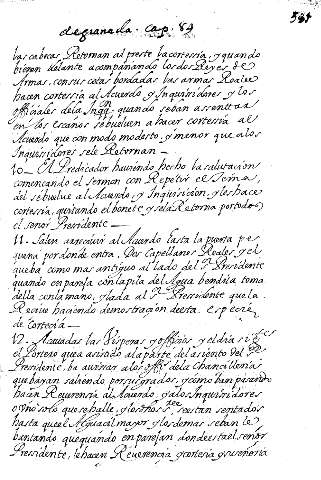 de granada. Cap. 84
bas cabezas Retornan al peste la cortessia, y quando
bienen delante acompañando los dos Reyes de
Armas, con sus cotas bordadas las armas Reales
hacen cortessia al Acuerdo, y Inquisidores y los
officiales de la Inqon. quando se ban a sentar
en los escaños se buelben a hacer cortessia al
Acuerdo que con modo modesto, y menor que a los
Inquisidores se le Retornan —
10— El Predicador haviendo hecho la salutacion
comenzando el sermon con Repetir el Tema,
del se buelve al Acuerdo, y Inquisicion, y les hace
cortessia, quitando el bonete, y se la Retorna por todos
el señor Presidente —
11— Salen a recevir al Acuerdo hasta la puerta pe
quena por donde entra, Dos Capellanes Reales y el
que ba como mas antiguo al lado del Sr. Presidente
quando en pareja con la pila del Agua bendita toma
della con la mano, y la da al Sr. Presidente que la
Recive haciendo demostracion desta especie
de cortecia —
12— Acavadas las Visperas y officios y el dia
el Portero que a asistido a la parte del asiento del Sr.
Presidente, ba a avisar a los offes. de la Chancilleria
que bayan saliendo por sus grados, y como ban pasando
hacen Reverensia al Acuerdo, y a los Inquisidores
o uno solo que se halle, y los se estan sentados
hasta que el Alguacil mayor y los demas se ban le
bantando que quando en parejan donde esta el señor
Presidente, le hacen Reverencia y cortesia y su señoria